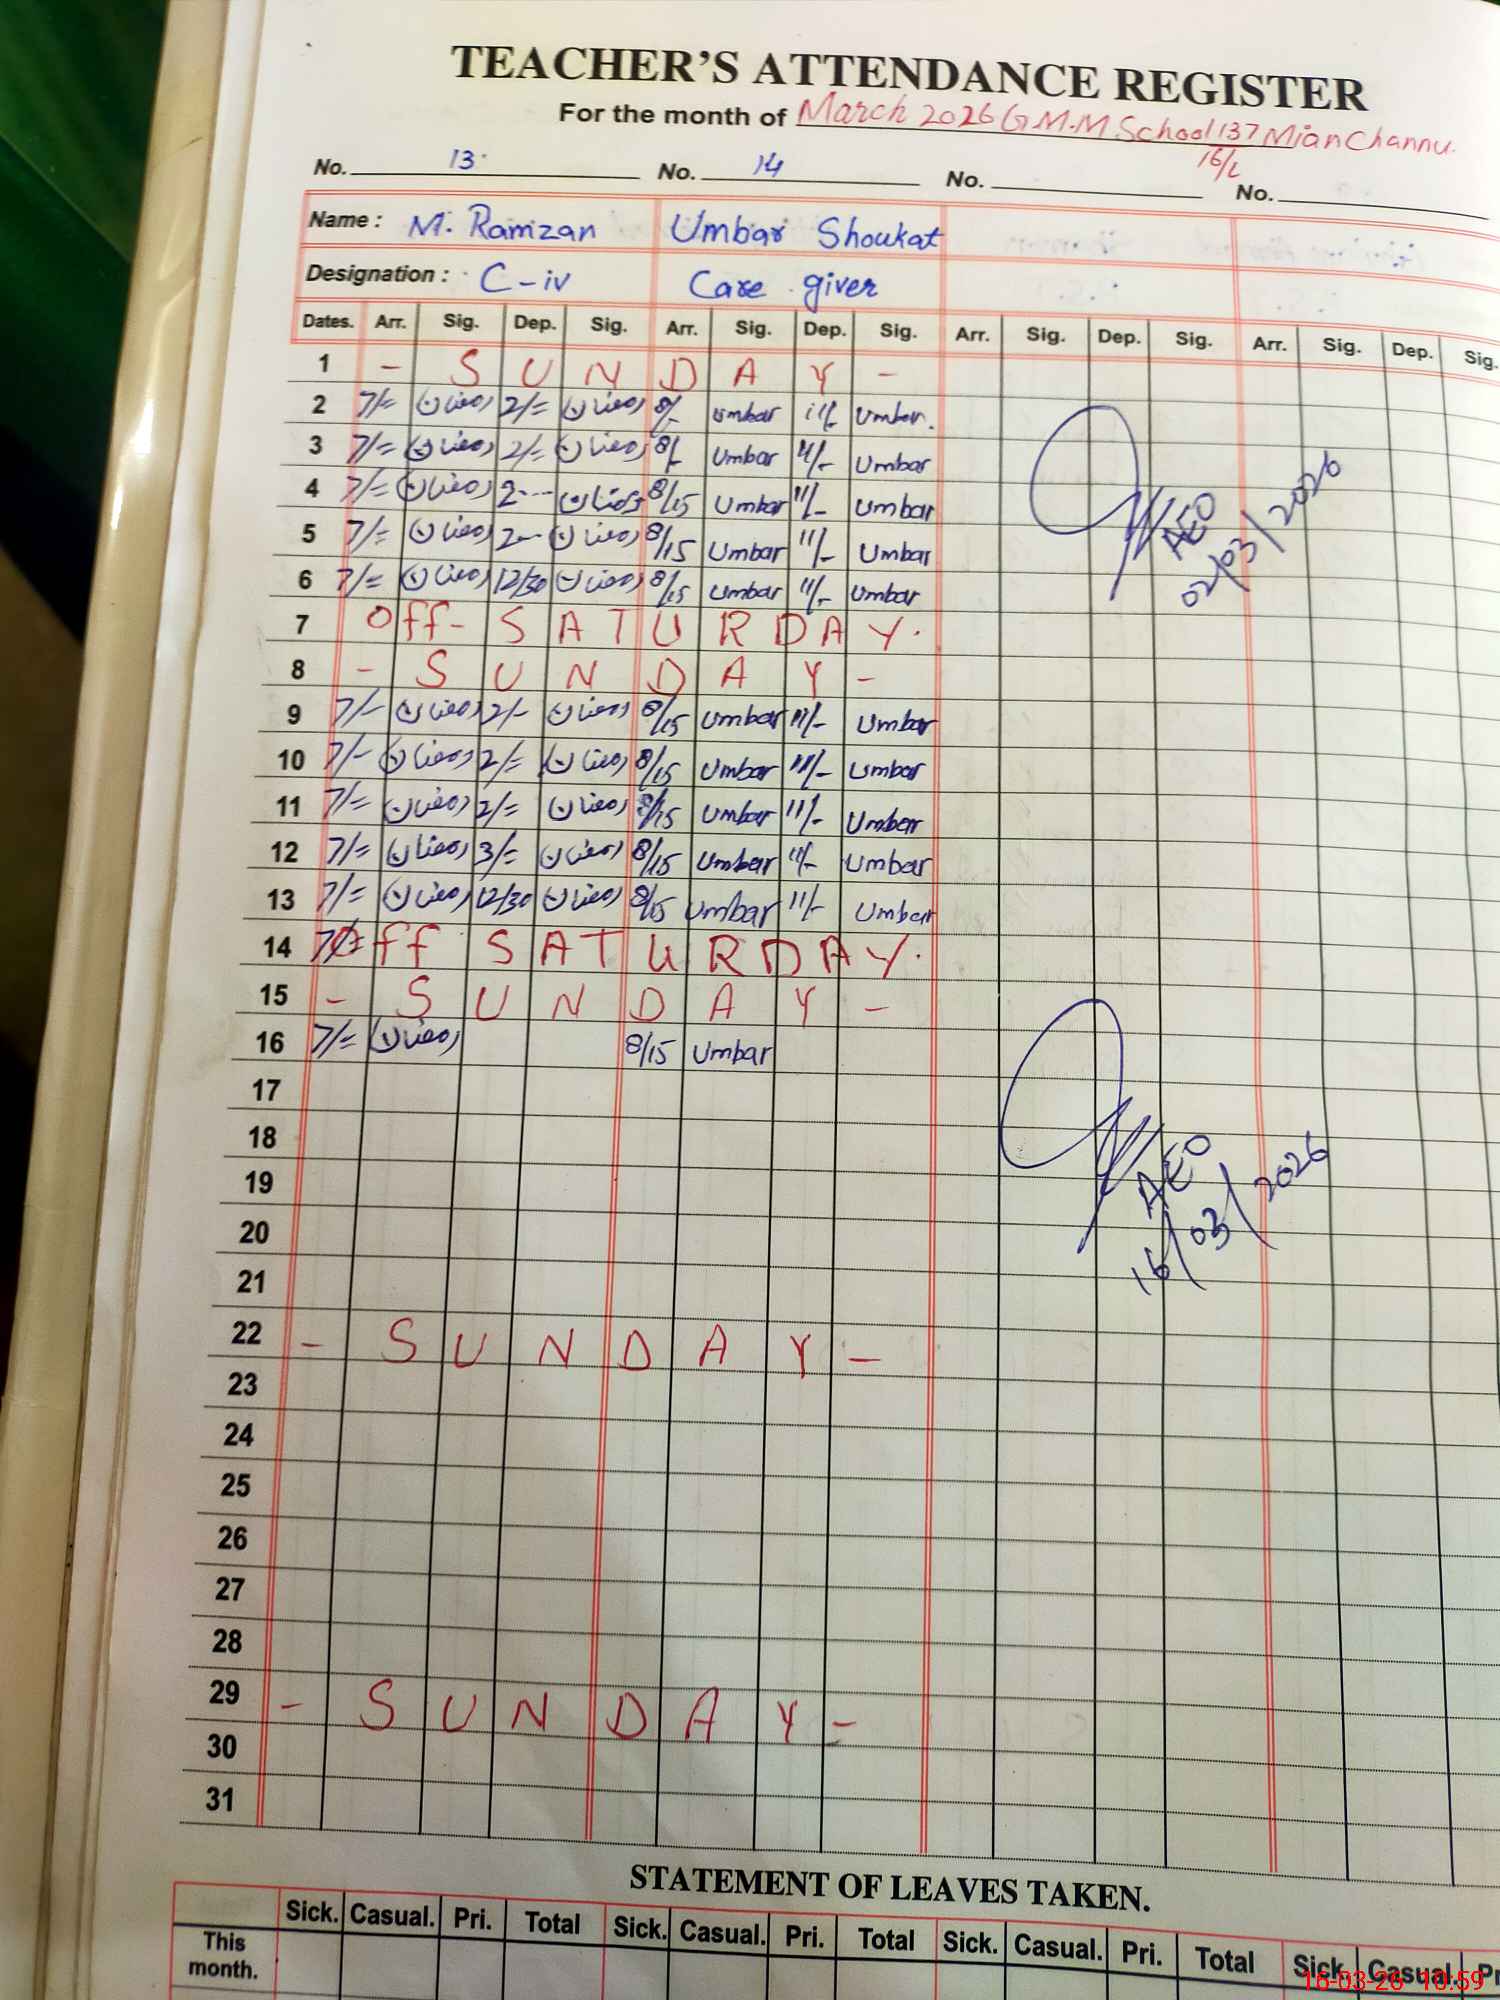 TEACHER'S ATTENDANCE REGISTER
For the month of March 2026 G.M.M. School 137 Mian Channu.
16/L
No. 13 No. 14 No. No.
Name : M. Ramzan Umbar Shoukat
Designation : C-iv Care giver
Dates. Arr. Sig. Dep. Sig. Arr. Sig. Dep. Sig. Arr. Sig. Dep. Sig. Arr. Sig. Dep. Sig.
1 - S U N D A Y -
2 7/= رمضان 2/= رمضان 8/- Umbar 11/- Umbar.
3 7/= رمضان 2/= رمضان 8/- Umbar 11/- Umbar
4 7/= رمضان 2--- رمضان 8/15 Umbar 11/- Umbar
5 7/= رمضان 2-- رمضان 8/15 Umbar 11/- Umbar
6 7/= رمضان 12/30 رمضان 8/15 Umbar 11/- Umbar
AEO
02/03/2026
7 Off- S A T U R D A Y.
8 - S U N D A Y -
9 7/- رمضان 2/- رمضان 8/15 Umbar 11/- Umbar
10 7/- رمضان 2/= رمضان 8/15 Umbar 11/- Umbar
11 7/= رمضان 2/= رمضان 8/15 Umbar 11/- Umbar
12 7/= رمضان 3/= رمضان 8/15 Umbar 11/- Umbar
13 7/= رمضان 12/30 رمضان 8/15 Umbar 11/- Umbar
14 Off S A T U R D A Y.
15 - S U N D A Y -
16 7/= رمضان 8/15 Umbar
17
18
AEO
16/03/2026
19
20
21
22 - S U N D A Y -
23
24
25
26
27
28
29 - S U N D A Y -
30
31
STATEMENT OF LEAVES TAKEN.
Sick. Casual. Pri. Total Sick. Casual. Pri. Total Sick. Casual. Pri. Total Sick. Casual. Pr
This month.
16-03-26 10:59